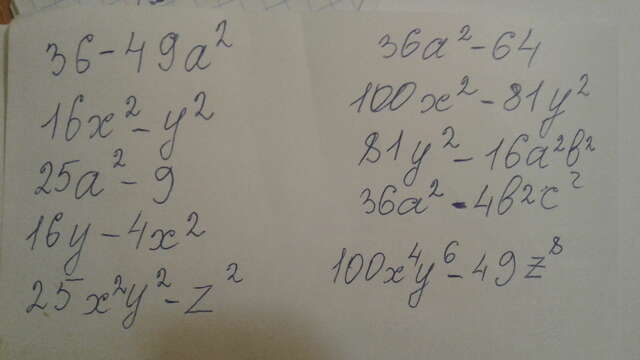 36-49a²
16x²-y²
25a²-9
16y-4x²
25x²y²-z²
36a²-64
100x²-81y²
81y²-16a²b²
36a²-4b²c²
100x⁴y⁶-49z⁸